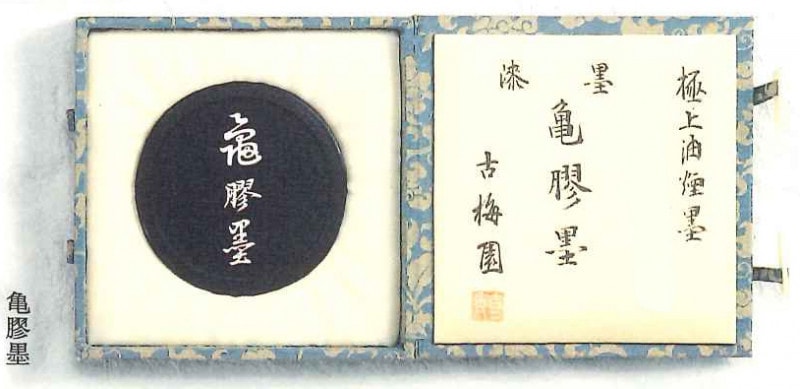 極上油煙墨
墨漆
亀膠墨
古梅園
龜膠墨
亀膠墨